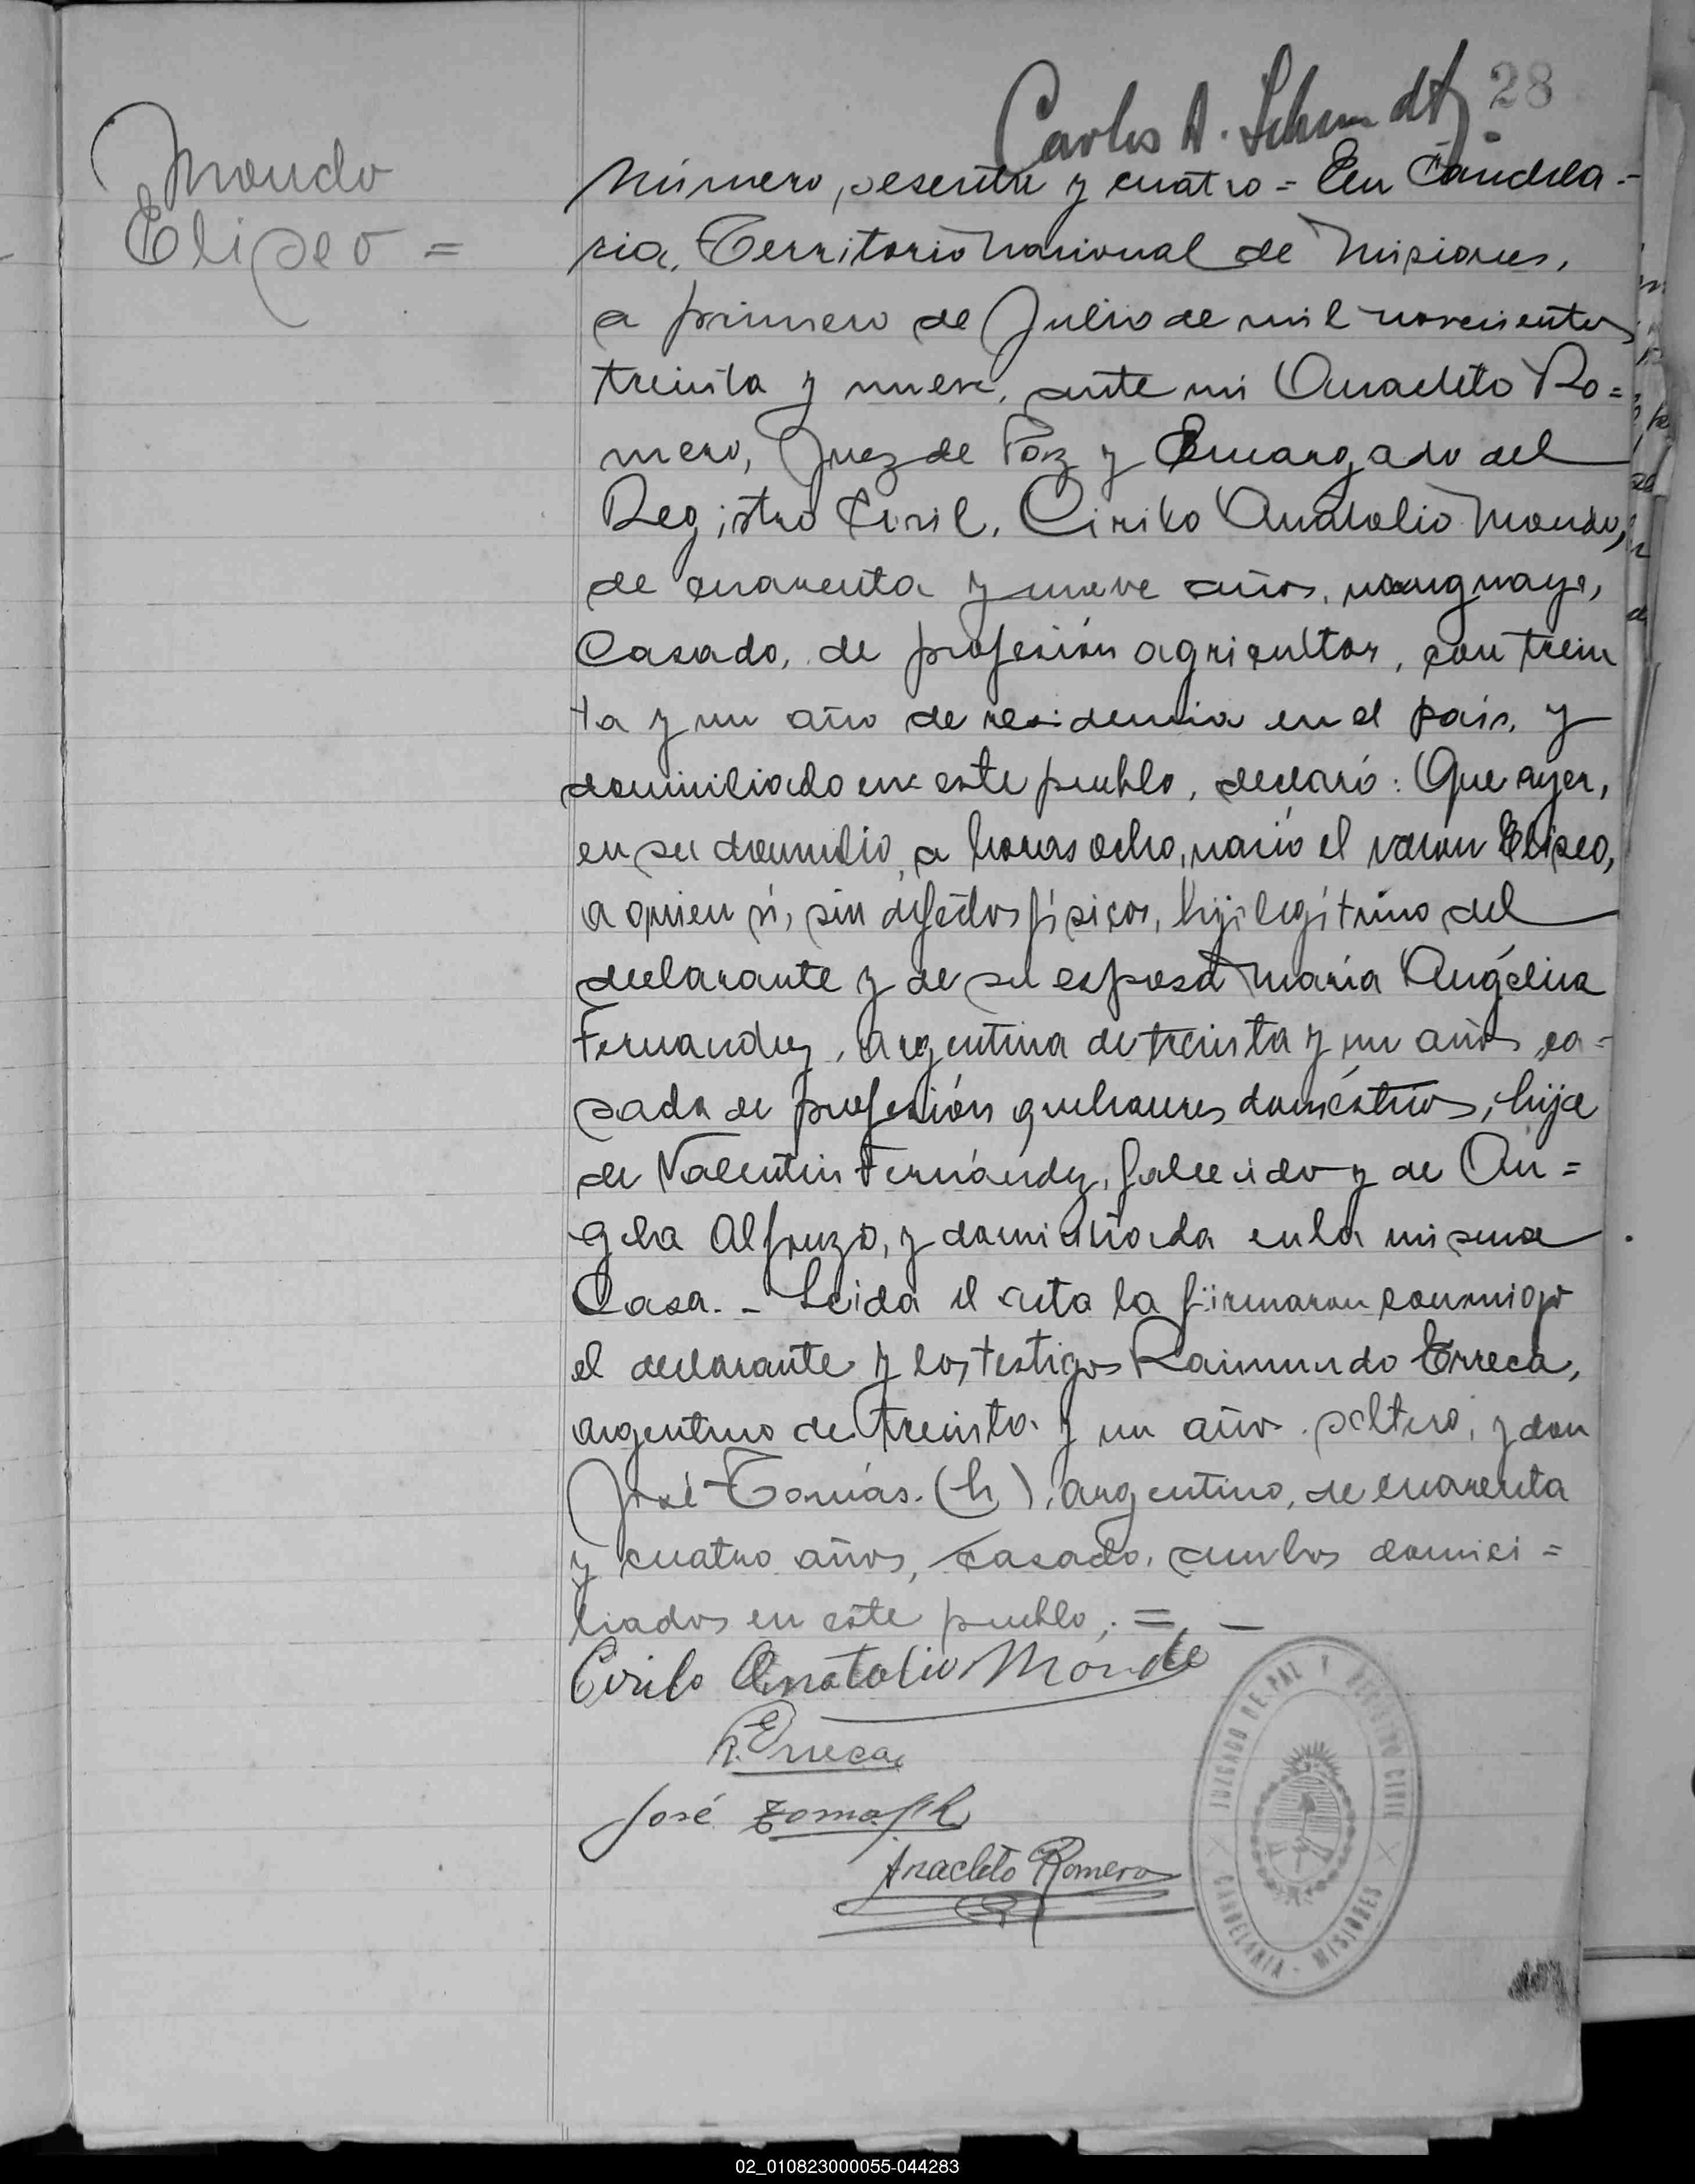 Carlos A. Schmidt
28
Mondo
Eliseo =
Número, sesenta y cuatro = En Candela =
ria, Territorio Nacional de Misiones,
a primero de Julio de mil novecientos
treinta y nueve, ante mi Anacleto Ro =
mero, Juez de Paz y Encargado del
Registro Civil, Cirilo Anatolio Mondo,
de cuarenta y nueve años, uruguayo,
casado, de profesión agricultor, con trein
ta y un año de residencia en el país, y
domiciliado en este pueblo, declaró: Que ayer,
en su domicilio, a horas ocho, nació el varón Eliseo,
a quien ví, sin defectos físicos, hijo legítimo del
declarante y de su esposa María Angélica
Fernandez, argentina de treinta y un años, ca =
sada de profesión quehaceres domésticos, hija
de Valentin Fernández, fallecido y de An =
gela Alfonzo, y domiciliada en la misma
Casa. - Leida el acta la firmaron conmigo
el declarante y los testigos Raimundo Erreca,
argentino de treinta y un años soltero, y don
José Tomás (h), argentino, de cuarenta
y cuatro años, casado, ambos domici =
liados en este pueblo. = -
Cirilo Anatolio Mondo
R. Erreca
José Tomas h
Anacleto Romero
JUZGADO DE PAZ Y REGISTRO CIVIL
CANDELARIA - MISIONES
02_010823000055-044283